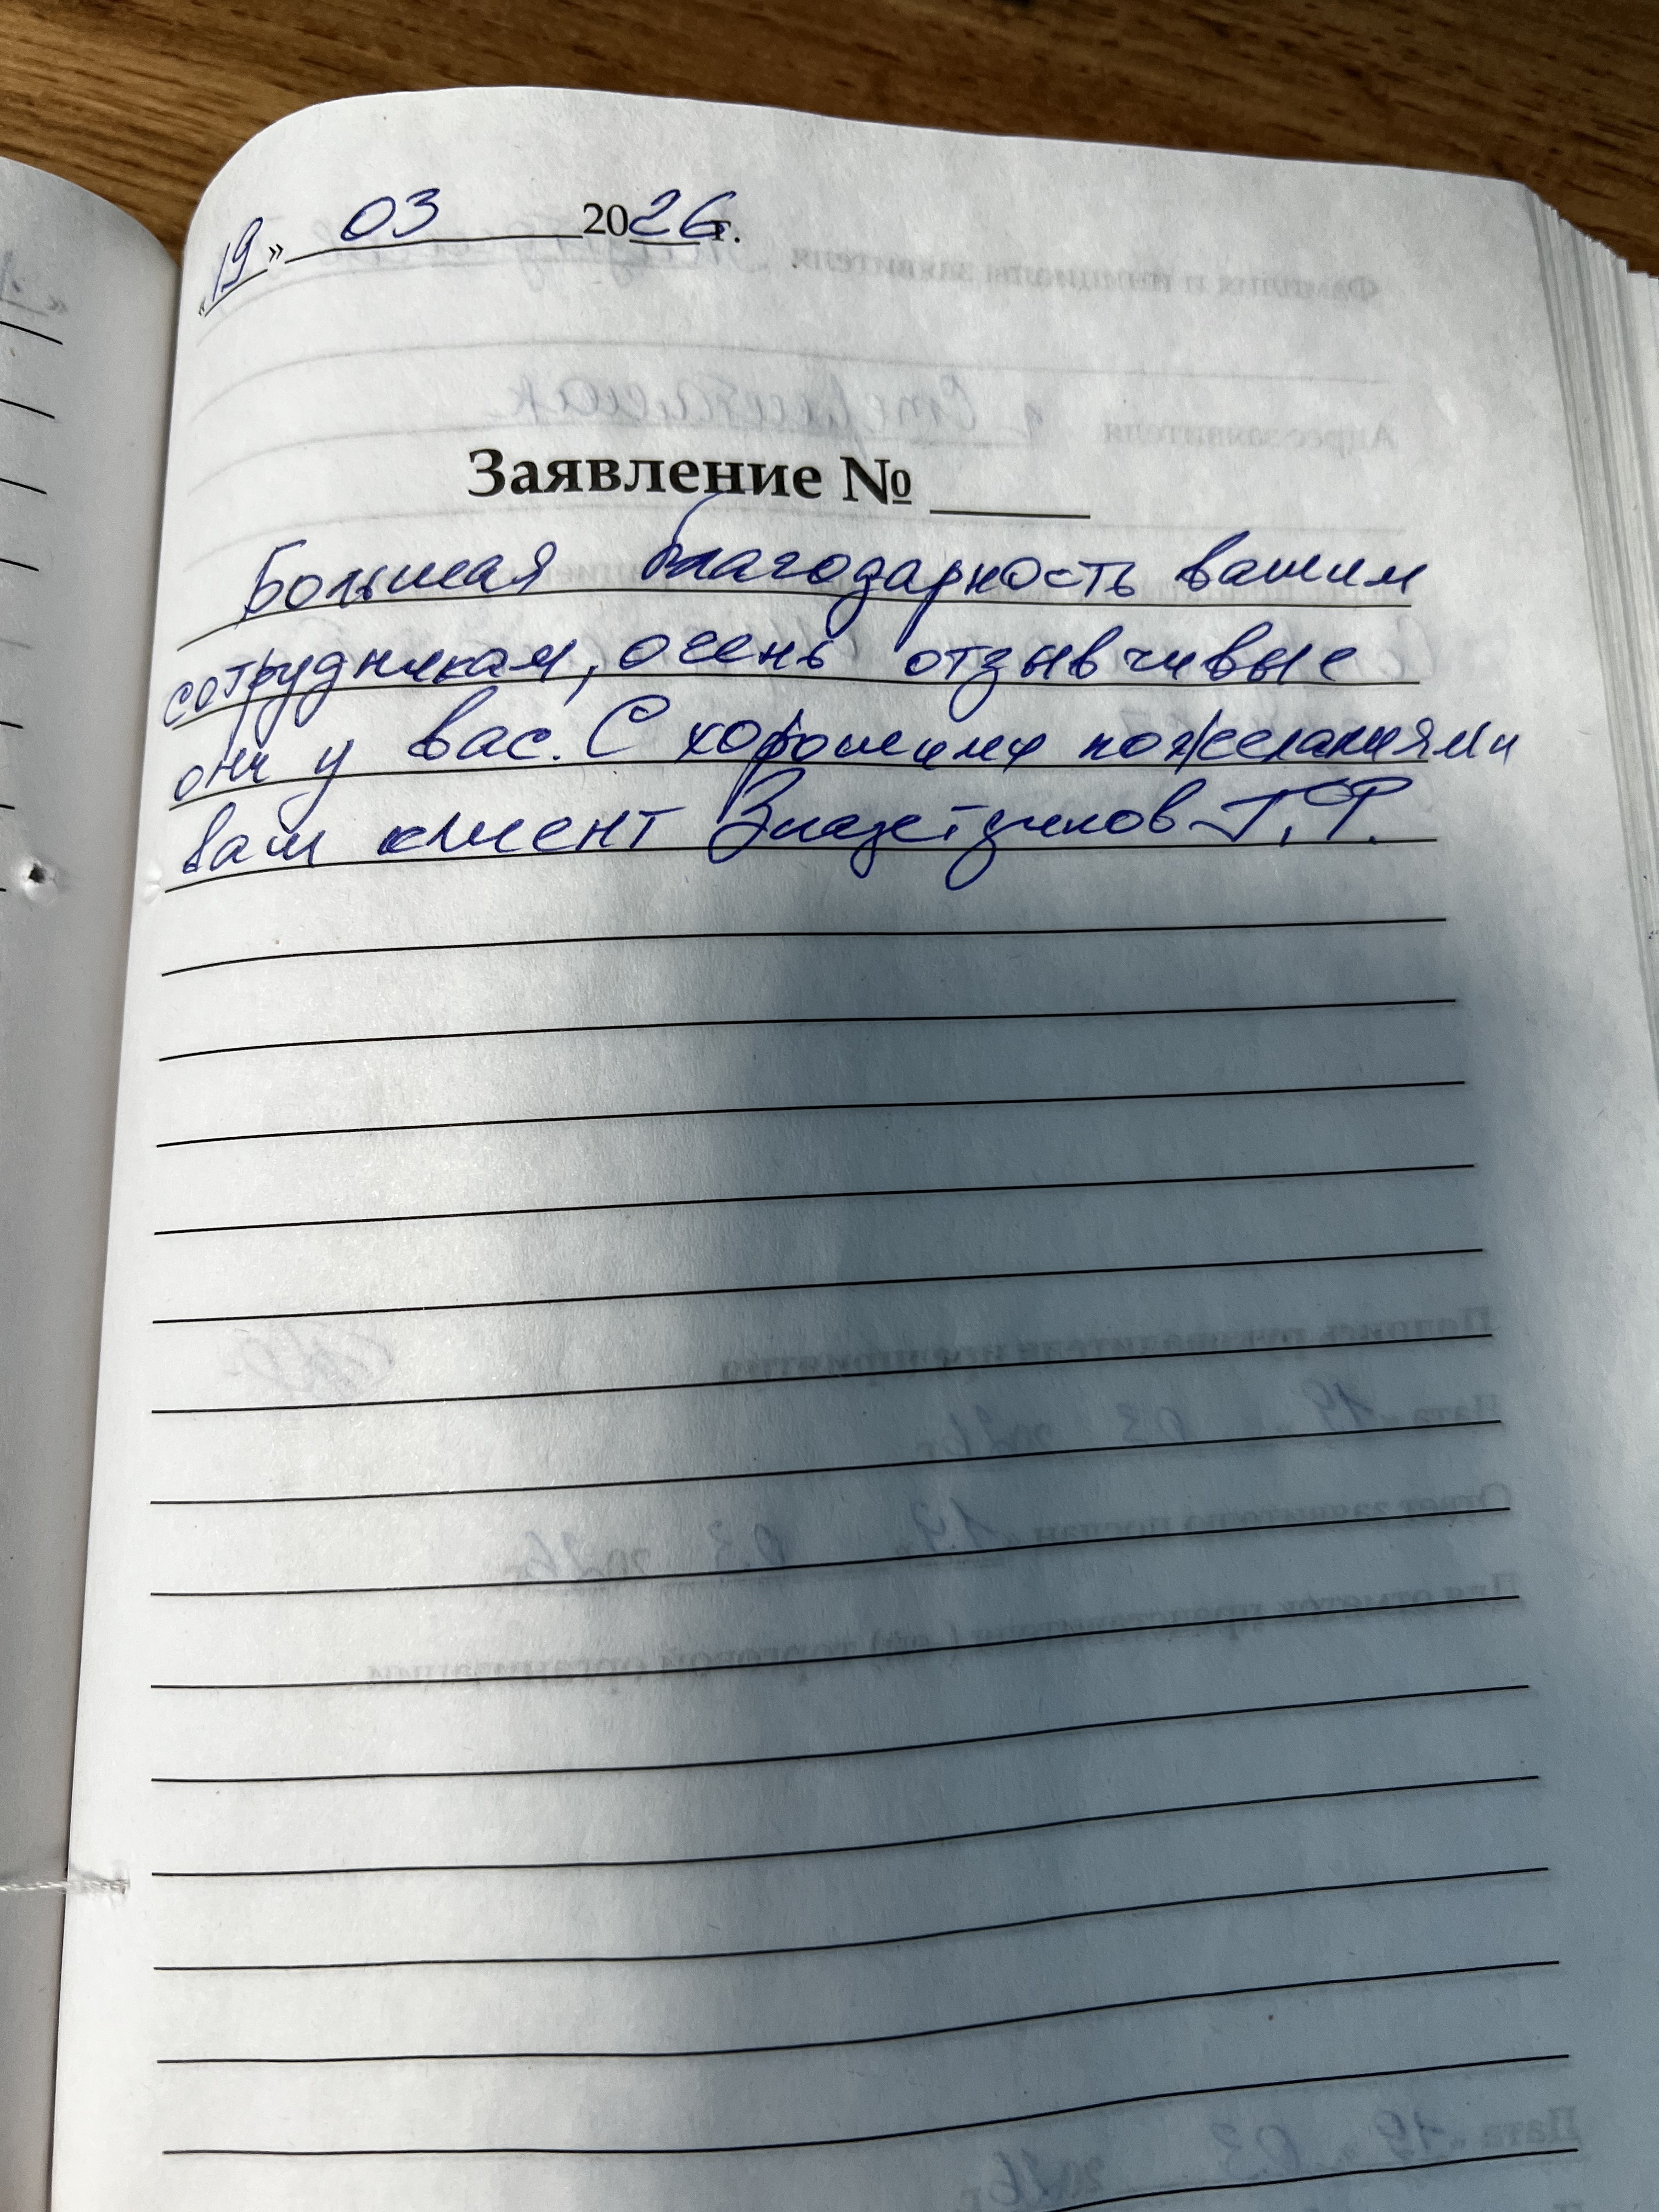 «19» 03 2026г.
Заявление №
Большая благодарность вашим
сотрудникам, очень отзывчивые
они у вас. С хорошими пожеланиями
ваш клиент Т.Ф.